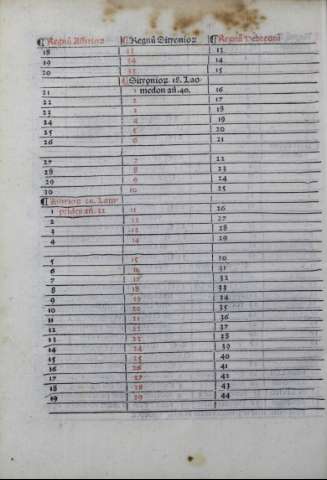 ¶ Regnū Assirioꝝ ¶ Regnū Sitrenioꝝ ¶ Regnū Hebreoꝝ
18 13 13
19 14 14
20 15 15
Sitrenioꝝ 18. Lao-
21 1 medon añ. 40. 16
22 2 17
23 3 18
24 4 19
25 5 20
26 6 21
27 7 22
28 8 23
29 9 24
30 10 25
¶ Assirioꝝ 20. Lam-
1 prides añ. 32 11 26
2 12 27
3 13 28
4 14 29
5 15 30
6 16 31
7 17 32
8 18 33
9 19 34
10 20 35
11 21 36
12 22 37
13 23 38
14 24 39
15 25 40
16 26 41
17 27 42
18 28 43
19 29 44